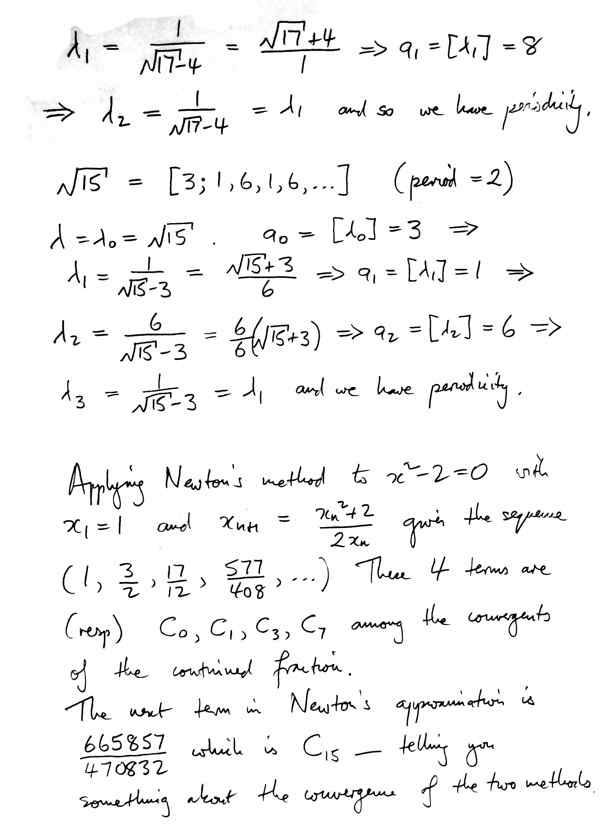 λ₁ = 1/(√17-4) = (√17+4)/1 ⇒ a₁ = [λ₁] = 8
⇒ λ₂ = 1/(√17-4) = λ₁ and so we have periodicity.
√15 = [3; 1, 6, 1, 6, ...] (period = 2)
λ = λ₀ = √15 . a₀ = [λ₀] = 3 ⇒
λ₁ = 1/(√15-3) = (√15+3)/6 ⇒ a₁ = [λ₁] = 1 ⇒
λ₂ = 6/(√15-3) = 6/6(√15+3) ⇒ a₂ = [λ₂] = 6 ⇒
λ₃ = 1/(√15-3) = λ₁ and we have periodicity.
Applying Newton's method to x²-2=0 with
x₁ = 1 and xₙ₊₁ = (xₙ²+2)/(2xₙ) gives the sequence
(1, 3/2, 17/12, 577/408, ...) These 4 terms are
(resp) C₀, C₁, C₃, C₇ among the convergents
of the continued fraction.
The next term in Newton's approximation is
665857/470832 which is C₁₅ — telling you
something about the convergence of the two methods.